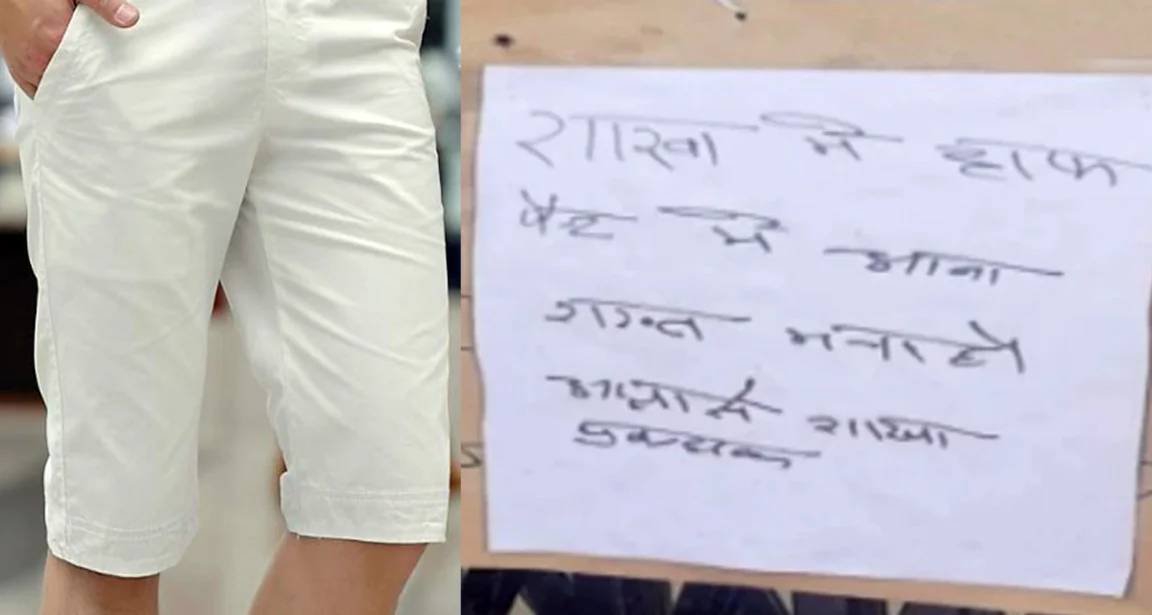 शाखा में हाफ
पैंट में आना
शख्त मना है
आज्ञा से शाखा
प्रबन्धक